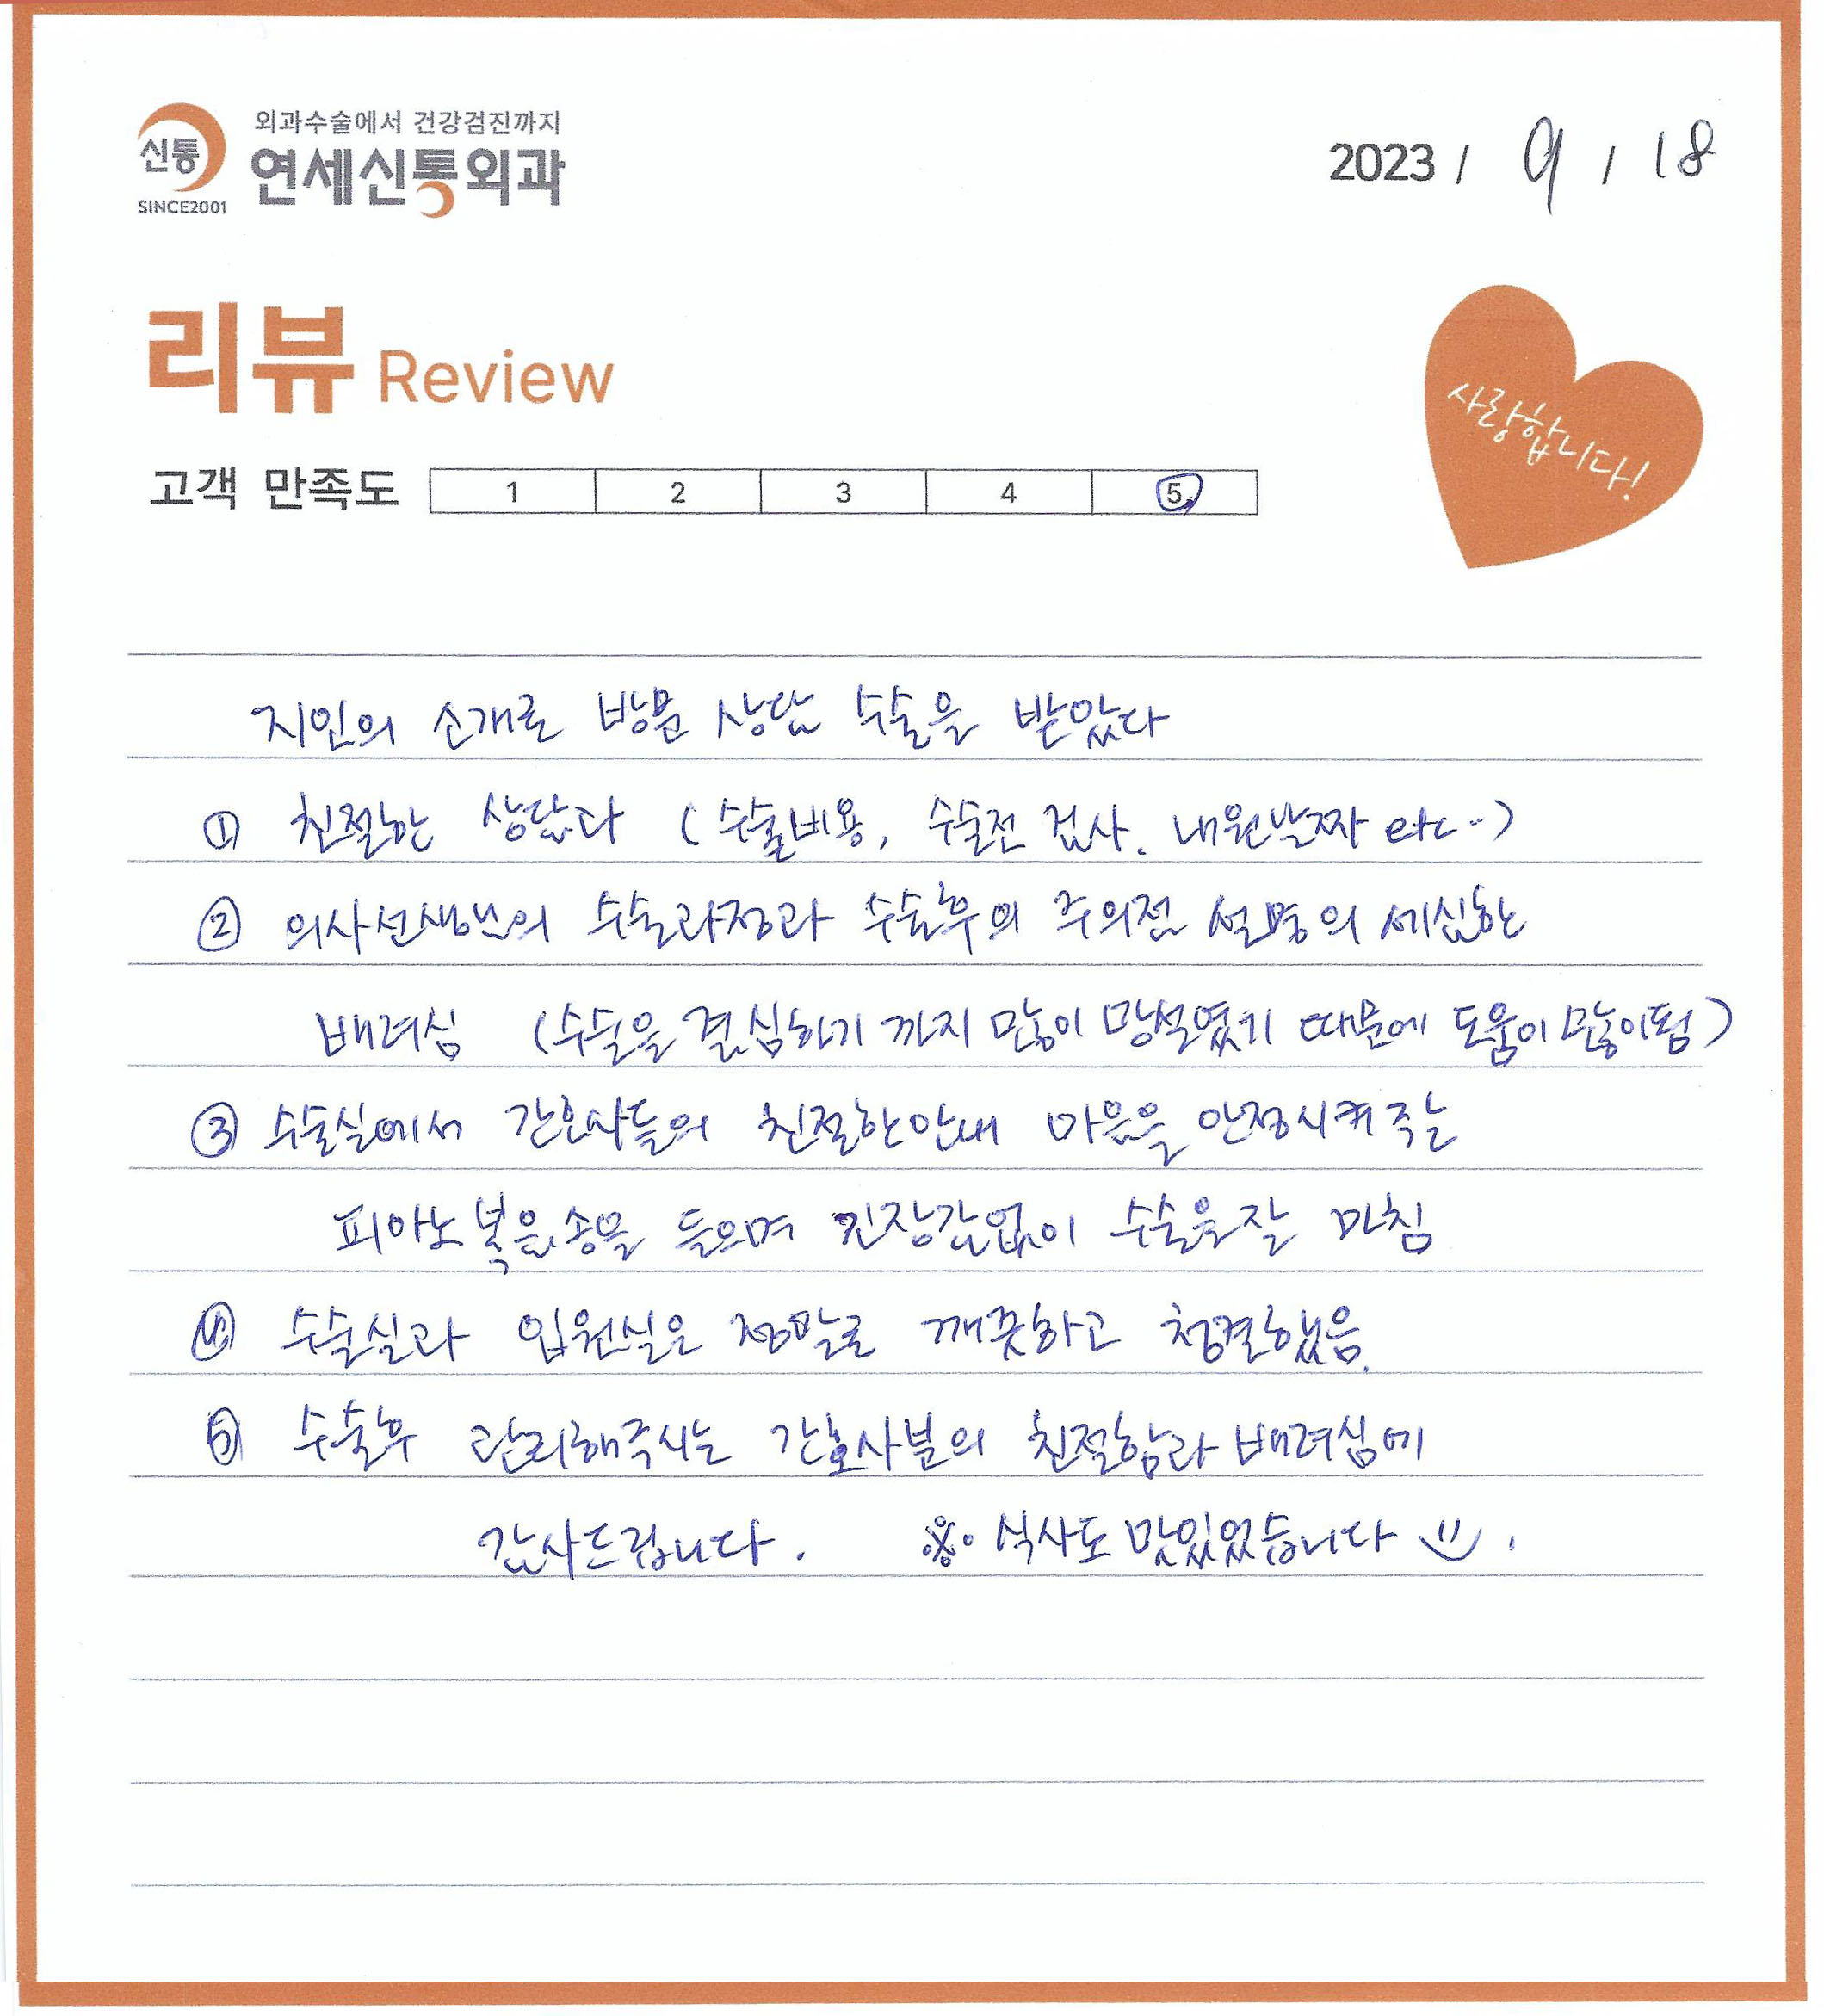 외과수술에서 건강검진까지
신통 연세신통외과
SINCE2001
2023 / 9 / 18
리뷰 Review
사랑합니다!
고객 만족도 1 2 3 4 5
지인의 소개로 방문 상담 수술을 받았다
① 친절한 상담과 (수술비용, 수술전 검사. 내원날짜 etc..)
② 의사선생님의 수술과정과 수술후의 주의점 설명의 세심한
배려심 (수술을 결심하기 까지 많이 망설였기 때문에 도움이 많이됨)
③ 수술실에서 간호사들의 친절한안내 마음을 안정시켜주는
피아노 송을 들으며 긴장감없이 수술을잘 마침
④ 수술실과 입원실은 정말로 깨끗하고 청결했음.
⑤ 수술후 관리해주시는 간호사분의 친절함과 배려심에
감사드립니다. ※ 식사도 맛있었습니다